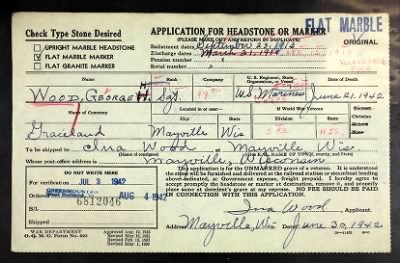 FLAT MARBLE
Check Type Stone Desired
APPLICATION FOR HEADSTONE OR MARKER
(PLEASE MAKE OUT AND RETURN IN DUPLICATE)
ORIGINAL
UPRIGHT MARBLE HEADSTONE
FLAT MARBLE MARKER
FLAT GRANITE MARKER
Enlistment dates September 23, 1912
Discharge dates
Pension No.
Serial No.
Name
Rank
Company
U. S. Regiment, State Organization, or Vessel
Date of Death
Wood, George H. Sgt. U.S. Marines June 21, 1942
Name of Cemetery
Located in or near
If World War Veteran
Graceland Mayville Wis
To be shipped to Ina Wood at Mayville, Wis.
Whose post-office address is Mayville, Wisconsin
DO NOT WRITE HERE
For verification JUL 3 1942
AUG 4 1942
6812046
This application is for the UNMARKED grave of a veteran. It is understood the stone will be furnished and delivered at the railroad station or steamboat landing above-indicated, at Government expense, freight prepaid. I hereby agree to promptly accept the headstone or marker at destination, remove it, and properly place same at decedent's grave at my expense. NO FEE SHOULD BE PAID IN CONNECTION WITH THIS APPLICATION.
Ina Wood, Applicant.
Mayville, Wis June 30, 1942
WAR DEPARTMENT
O. Q. M. G. Form No. 623